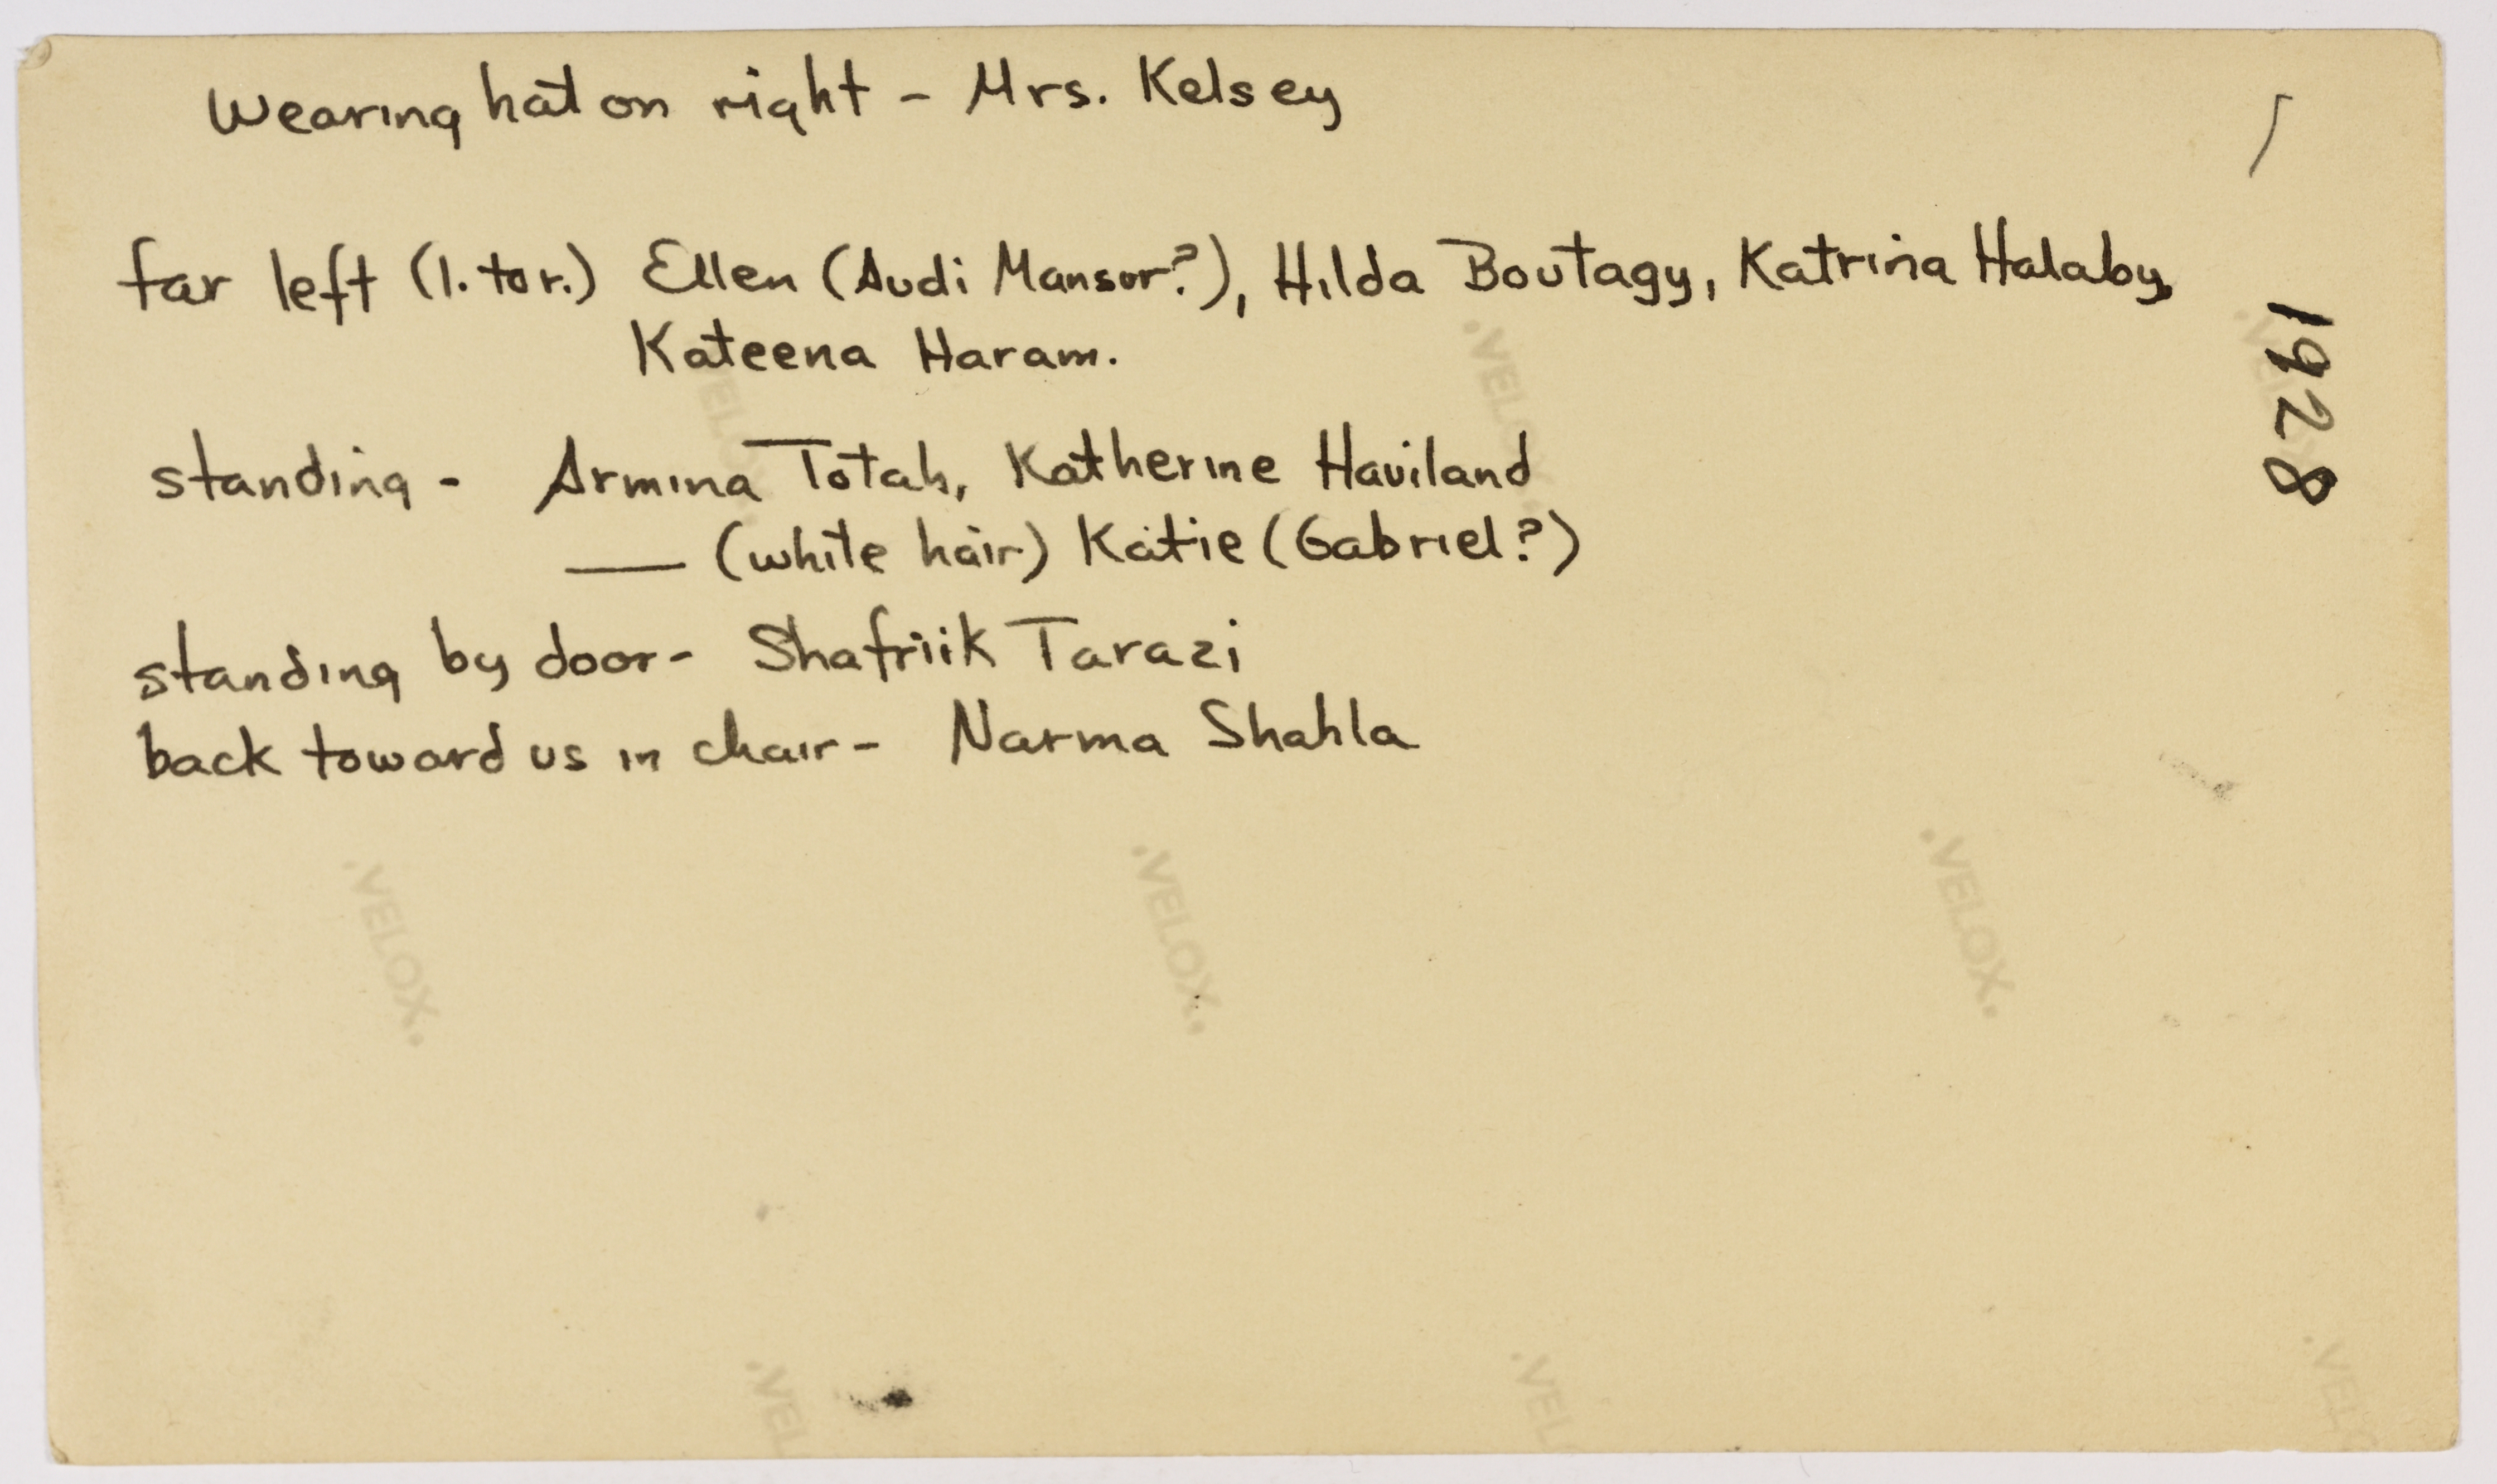 Wearing hat on right - Mrs. Kelsey
far left (l. to r.) Ellen (Audi Mansur?), Hilda Boutagy, Katrina Halaby,
Kateena Haram.
standing - Armina Totah, Katherine Haviland
— (white hair) Katie (Gabriel?)
standing by door - Shafriik Tarazi
back toward us in chair - Narma Shahla
1928
VELOX
VELOX
VELOX
VELOX
VELOX
VELOX
VEL
VEL
VELO